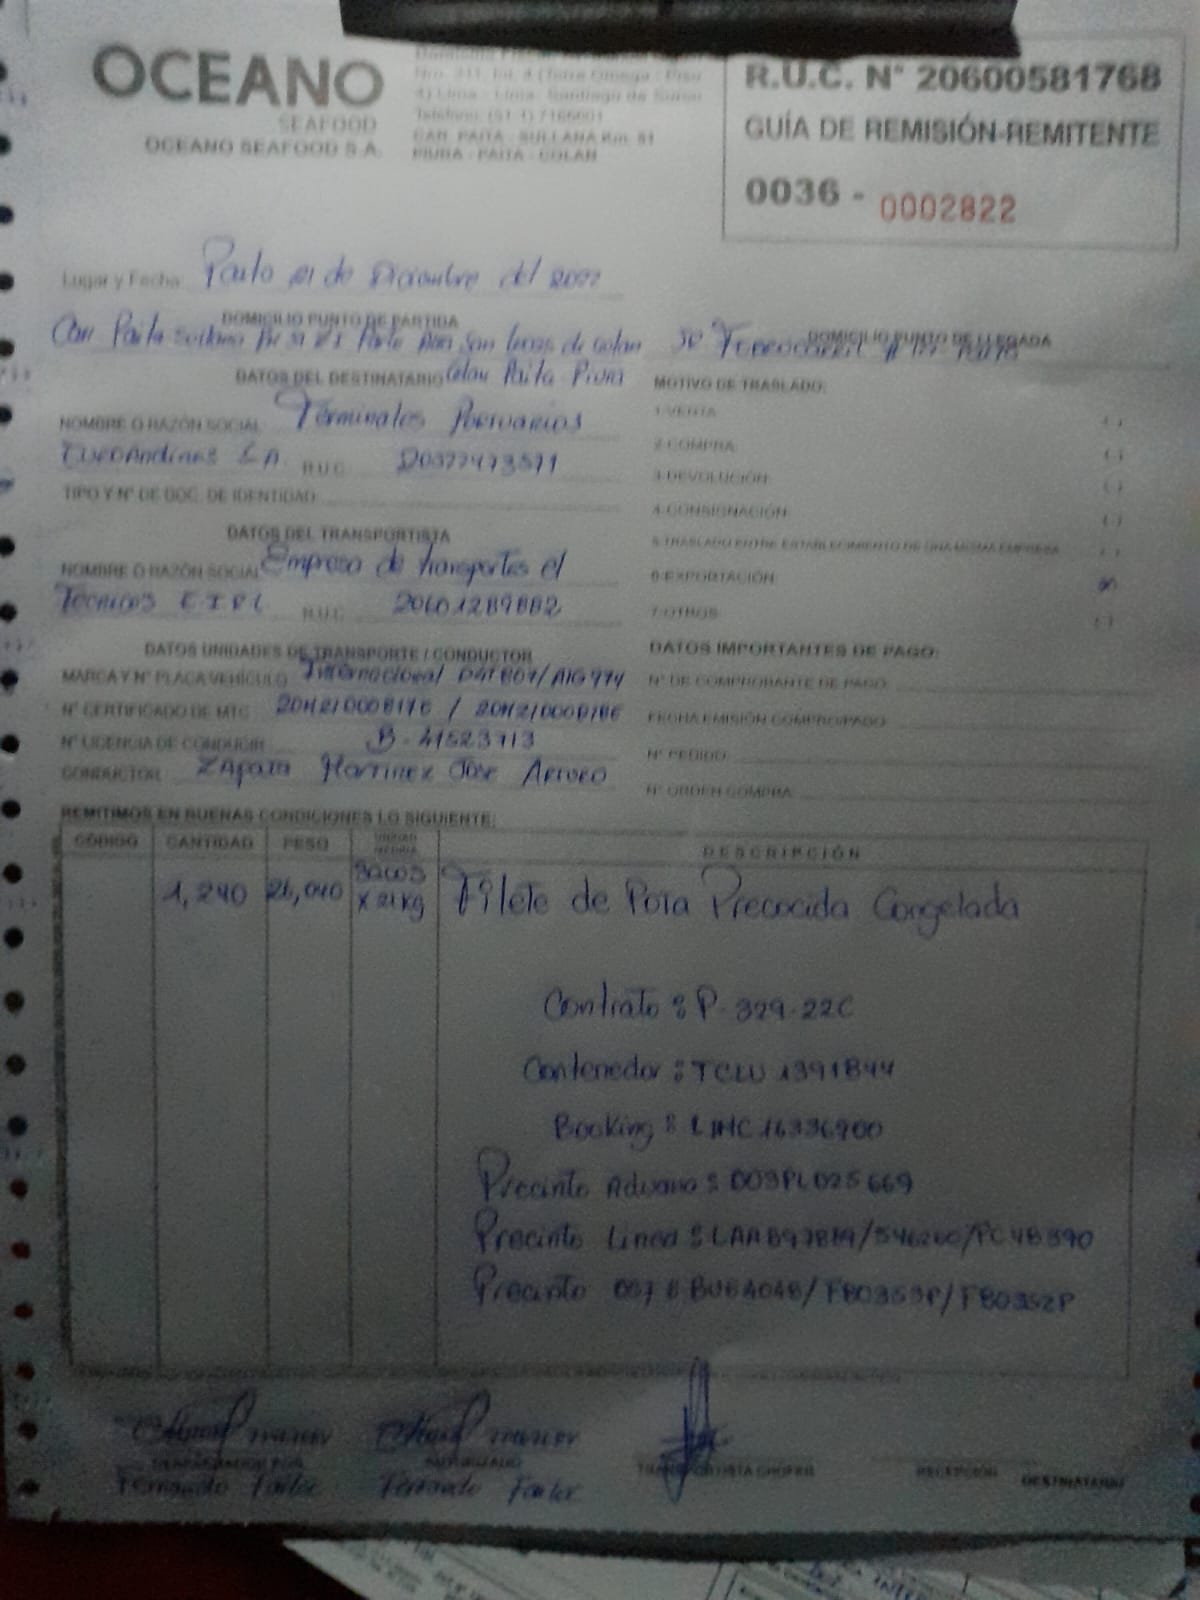 OCEANO
SEAFOOD
OCEANO SEAFOOD S.A.
Nro. 311 Int. 4 (Torre Omega - Piso
4) Lima - Lima - Santiago de Surco
Teléfono: (51-1) 7166001
CAR. PAITA - SULLANA Km. 51
PIURA - PAITA - COLAN
R.U.C. N° 20600581768
GUÍA DE REMISIÓN-REMITENTE
0036 - 0002822
Lugar y Fecha: Paita 21 de Diciembre del 2022
DOMICILIO PUNTO DE PARTIDA
DOMICILIO PUNTO DE LLEGADA
Car Paita Sullana San Lucas de Colan
Colan Paita Piura
DATOS DEL DESTINATARIO
NOMBRE O RAZÓN SOCIAL Terminales Portuarios
Euroandinos S.A. R.U.C. 20522473571
TIPO Y N° DE DOC. DE IDENTIDAD:
DATOS DEL TRANSPORTISTA
NOMBRE O RAZÓN SOCIAL Empresa de transportes el
Tecnicos E.I.R.L R.U.C. 20601289882
DATOS UNIDADES DE TRANSPORTE / CONDUCTOR
MARCA Y N° PLACA VEHÍCULO Internacional
N° CERTIFICADO DE MTC
N° LICENCIA DE CONDUCIR B-41523713
CONDUCTOR Zapata Martinez Jose Arturo
MOTIVO DE TRASLADO:
1-VENTA ( )
2-COMPRA ( )
3-DEVOLUCIÓN ( )
4-CONSIGNACIÓN ( )
5-TRASLADO ENTRE ESTABLECIMIENTO DE UNA MISMA EMPRESA ( )
6-EXPORTACIÓN (x)
7-OTROS ( )
DATOS IMPORTANTES DE PAGO:
N° DE COMPROBANTE DE PAGO:
FECHA EMISIÓN COMPROB/PAGO:
N° PEDIDO:
N° ORDEN COMPRA:
REMITIMOS EN BUENAS CONDICIONES LO SIGUIENTE:
CÓDIGO CANTIDAD PESO UNIDAD MEDIDA DESCRIPCIÓN
1,240 26,040 Sacos x 21 Kg Filete de Pota Precocida Congelada
Contrato : P-329-22C
Contenedor : TCLU 1391844
Booking : LIMC16336900
Precinto Aduana : 003PL025669
Precinto Linea : /PC4B390
Precinto /FB0353P/FB0352P
DESPACHADO POR AUTORIZADO TRANSPORTISTA CHOFER RECEPCIÓN DESTINATARIO
Fernando Fernando